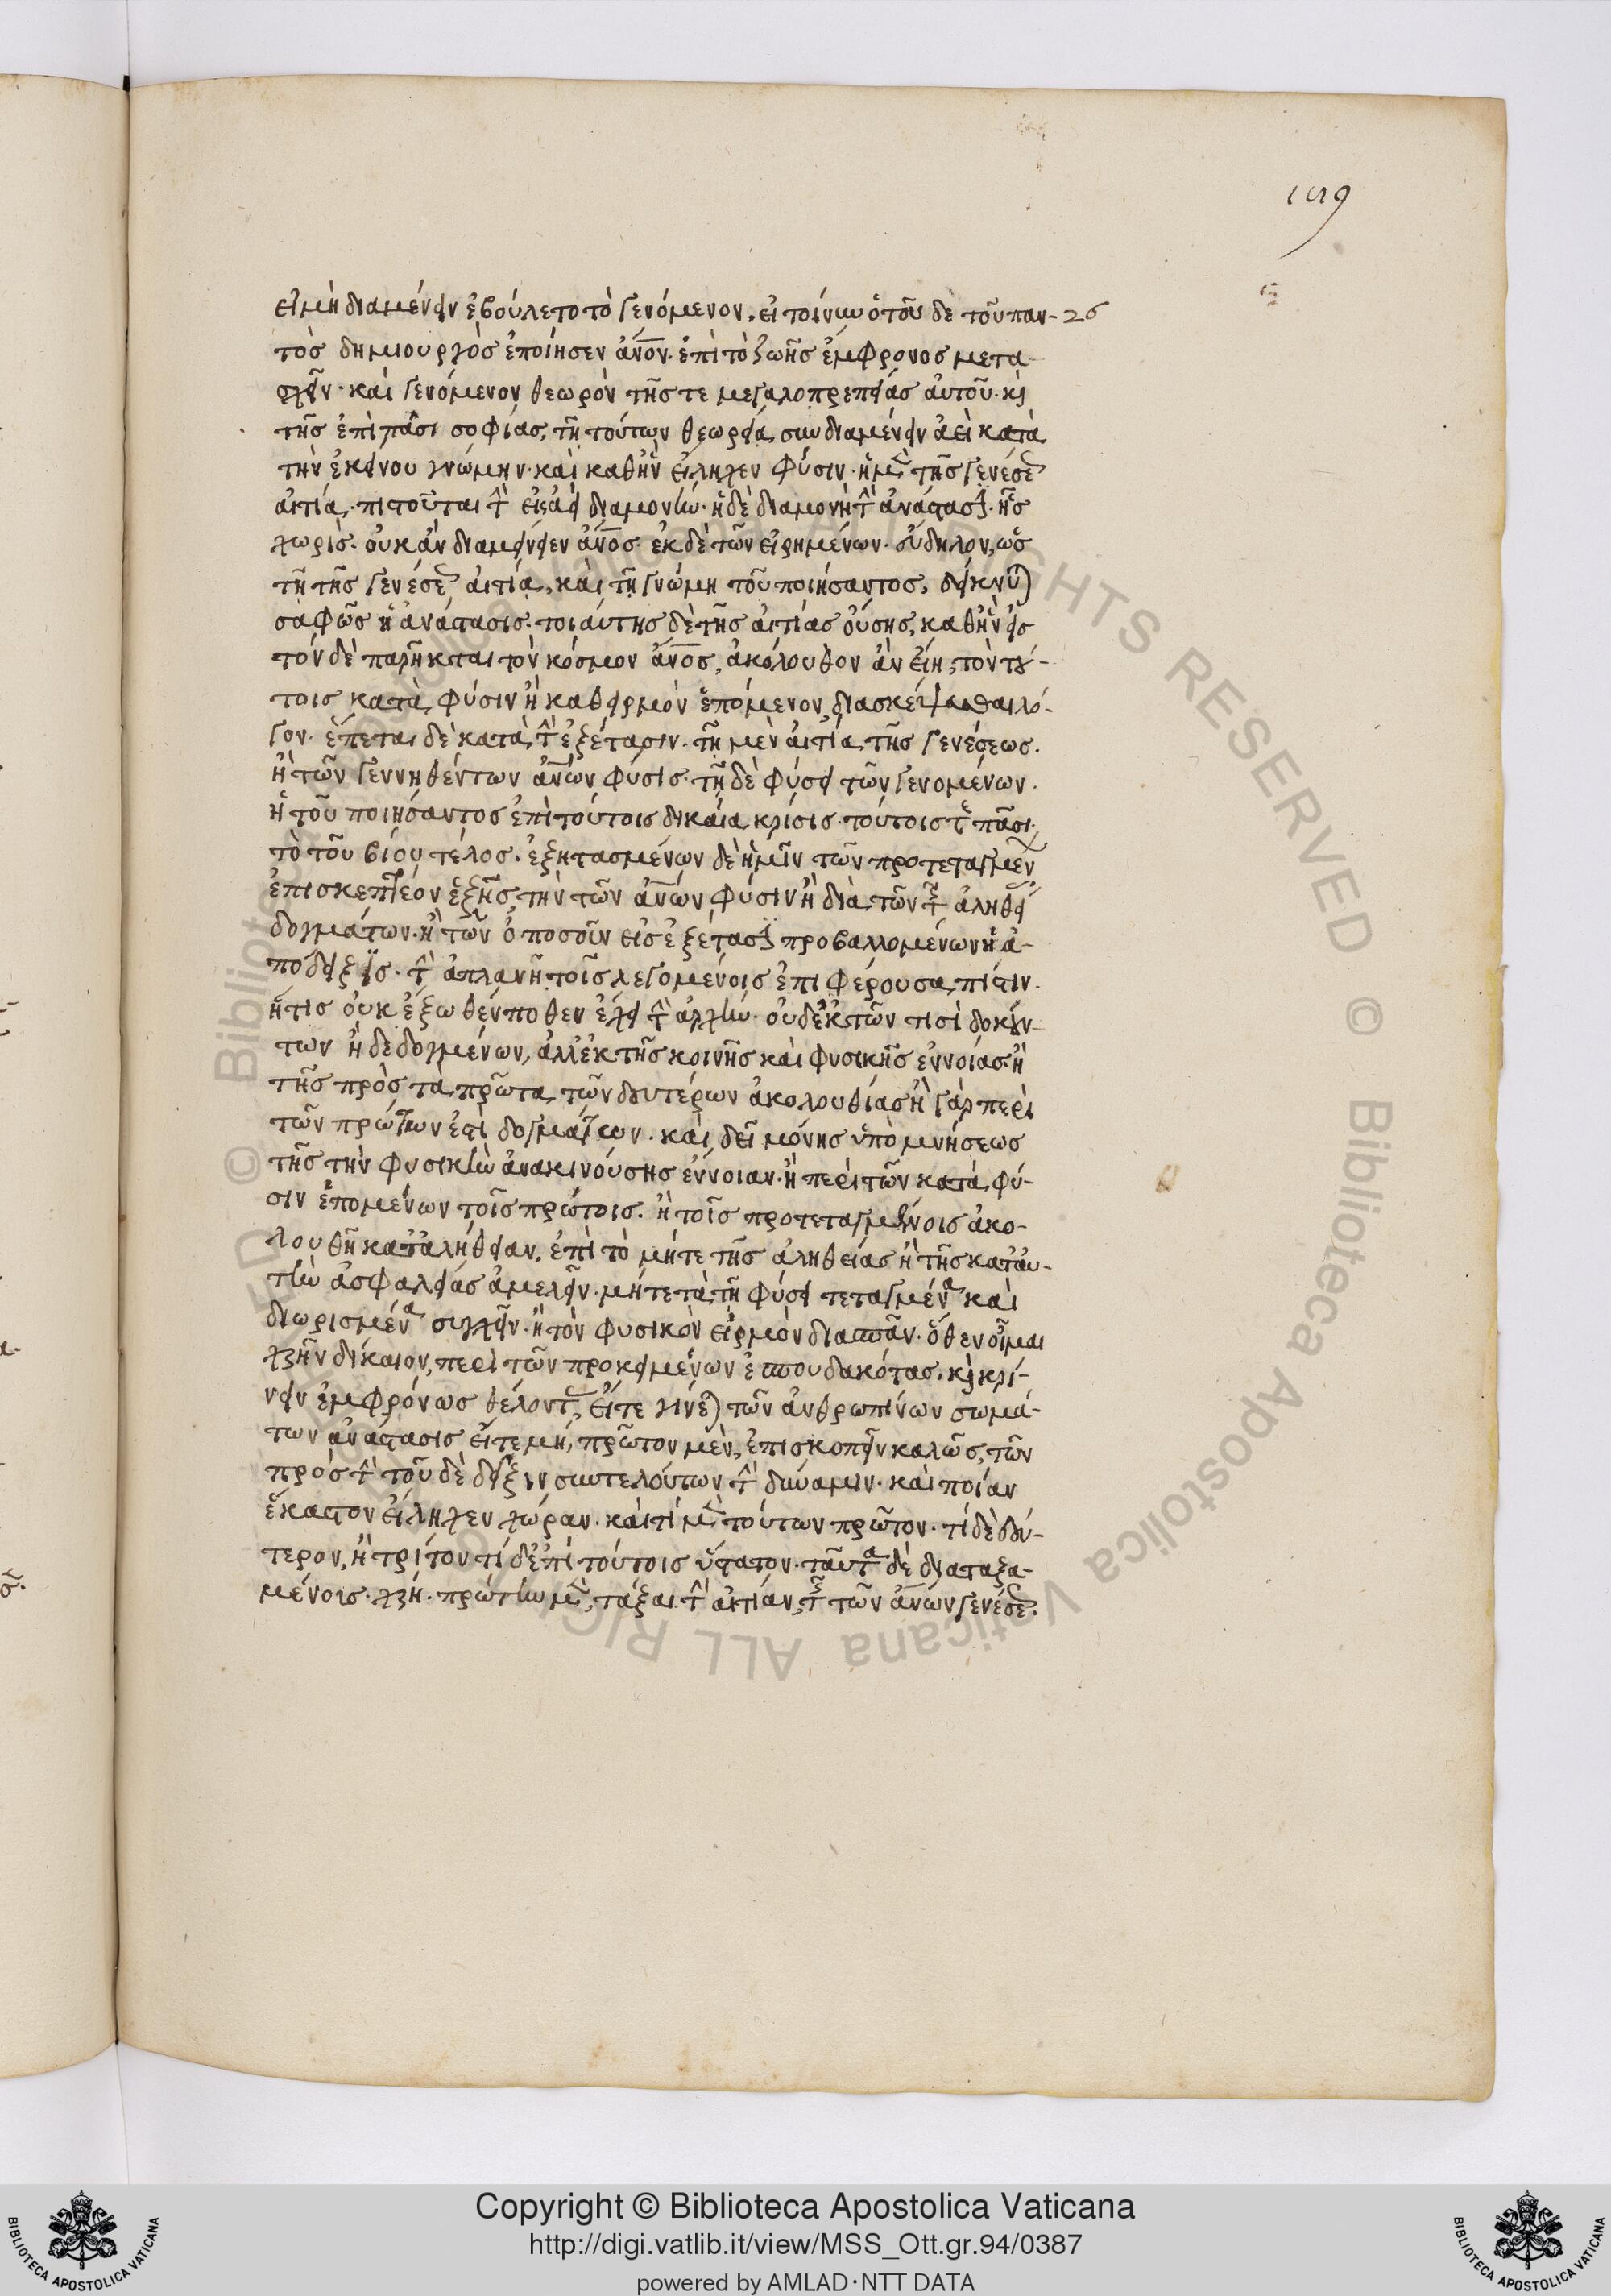 189
εἰ μὴ διαμένειν ἐβούλετο τὸ γενόμενον. εἰ τοίνυν ὁ τοῦ δὲ τοῦ παν- 26
τὸς δημιουργὸς ἐποίησεν ἄνον. ἐπὶ τὸ ζωῆς ἔμφρονος μετα-
σχεῖν. καὶ γενόμενον θεωρὸν τῆς τε μεγαλοπρεπείας αὐτοῦ. κὶ
τῆς ἐπὶ πᾶσι σοφίας, τῆ τούτων θεωρία συνδιαμένειν ἀεὶ κατὰ
τὴν ἐκείνου γνώμην. καὶ καθ' ἣν εἴληχεν φύσιν. ἡ μὲν τῆς γενέσεως
αἰτία πιστοῦται τὴν εἰς ἀεὶ διαμονὴν. ἡ δὲ διαμονὴ τὴν ἀνάστασιν. ἧς
χωρὶς. οὐκ ἂν διαμείνειεν ἄνος. ἐκ δὲ τῶν εἰρημένων. εὔδηλον, ὡς
τῆ τῆς γενέσεως αἰτία, καὶ τῆ γνώμη τοῦ ποιήσαντος, δείκνυται
σαφῶς ἡ ἀνάστασις. τοιαύτης δὲ τῆς αἰτίας οὔσης, καθ' ἣν εἰς
τόνδε παρῆκται τὸν κόσμον ἄνος, ἀκόλουθον ἂν εἴη, τὸν τού-
τοις κατὰ φύσιν ἢ καθ' εἱρμὸν ἑπόμενον διασκέψασθαι λό-
γον. ἕπεται δὲ κατὰ τὴν ἐξέτασιν. τῆ μὲν αἰτία τῆς γενέσεως.
ἡ τῶν γεννηθέντων ἄνων φύσις. τῆ δὲ φύσει τῶν γενομένων.
ἡ τοῦ ποιήσαντος ἐπὶ τούτοις δικαία κρίσις. τούτοις τε πᾶσι.
τὸ τοῦ βίου τέλος. ἐξητασμένων δὲ ἡμῖν τῶν προτεταγμένων
ἐπισκεπτέον ἑξῆς τὴν τῶν ἄνων φύσιν ἡ διὰ τῶν τῆς ἀληθείας
δογμάτων. ἢ τῶν ὁποσοῦν εἰς ἐξέτασιν προβαλλομένων ἡ ἀ-
πόδειξις. τὴν ἀπλανῆ τοῖς λεγομένοις ἐπιφέρουσα πίστιν.
ἥτις οὐκ ἔξωθέν ποθεν ἔχει τὴν ἀρχὴν. οὐδ' ἐκ τῶν τισὶ δοκούν-
των ἢ δεδογμένων, ἀλλ' ἐκ τῆς κοινῆς καὶ φυσικῆς ἐννοίας. ἢ
τῆς πρὸς τὰ πρῶτα τῶν δευτέρων ἀκολουθίας ἢ γὰρ περὶ
τῶν πρώτων ἐστὶ δογμάτων. καὶ δεῖ μόνης ὑπομνήσεως
τῆς τὴν φυσικὴν ἀνακινούσης ἔννοιαν. ἢ περὶ τῶν κατὰ φύ-
σιν ἑπομένων τοῖς πρώτοις. ἢ τοῖς προτεταγμένοις ἀκο-
λουθῆ κατάληψιν, ἐπὶ τὸ μήτε τῆς ἀληθείας ἢ τῆς κατ' αὐ-
τὴν ἀσφαλείας ἀμελεῖν. μήτε τὰ τῆ φύσει τεταγμένα καὶ
διωρισμένα συγχεῖν. ἢ τὸν φυσικὸν εἱρμὸν διασπᾶν. ὅθεν οἶμαι
χρῆν δίκαιον, περὶ τῶν προκειμένων ἐσπουδακότας, κὶ κρί-
νειν ἐμφρόνως θέλοντας, εἴτε γίνεται τῶν ἀνθρωπίνων σωμά-
των ἀνάστασις εἴτε μή, πρῶτον μὲν, ἐπισκοπεῖν καλῶς, τῶν
πρὸς τὴν τοῦ δὲ δεῖξιν συντελούντων τὴν δύναμιν. καὶ ποίαν
ἕκαστον εἴληχεν χώραν. καὶ τί μὲν τούτων πρῶτον. τί δὲ δεύ-
τερον, ἢ τρίτον τί δ' ἐπὶ τούτοις ὕστατον. ταῦτα δὲ διαταξα-
μένοις. χρὴ. πρώτην μὲν, τάξαι τὴν αἰτίαν, τῆς τῶν ἄνων γενέσεως.
Copyright © Biblioteca Apostolica Vaticana
http://digi.vatlib.it/view/MSS_Ott.gr.94/0387
powered by AMLAD·NTT DATA